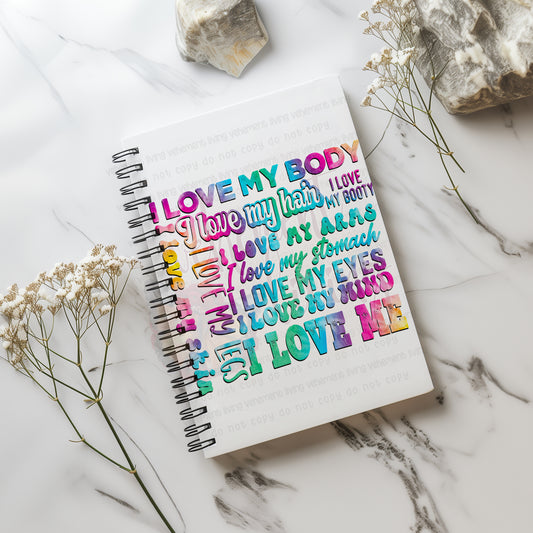 living vehement living vehement living
copy do not copy do not copy
I LOVE MY BODY
I love my hair
I LOVE
MY BOOTY
I LOVE MY ARMS
I love my stomach
I LOVE MY EYES
I LOVE MY MIND
I LOVE ME
I LOVE MY LEGS
I LOVE my skin
living vehement living vehement living
do not copy do not copy